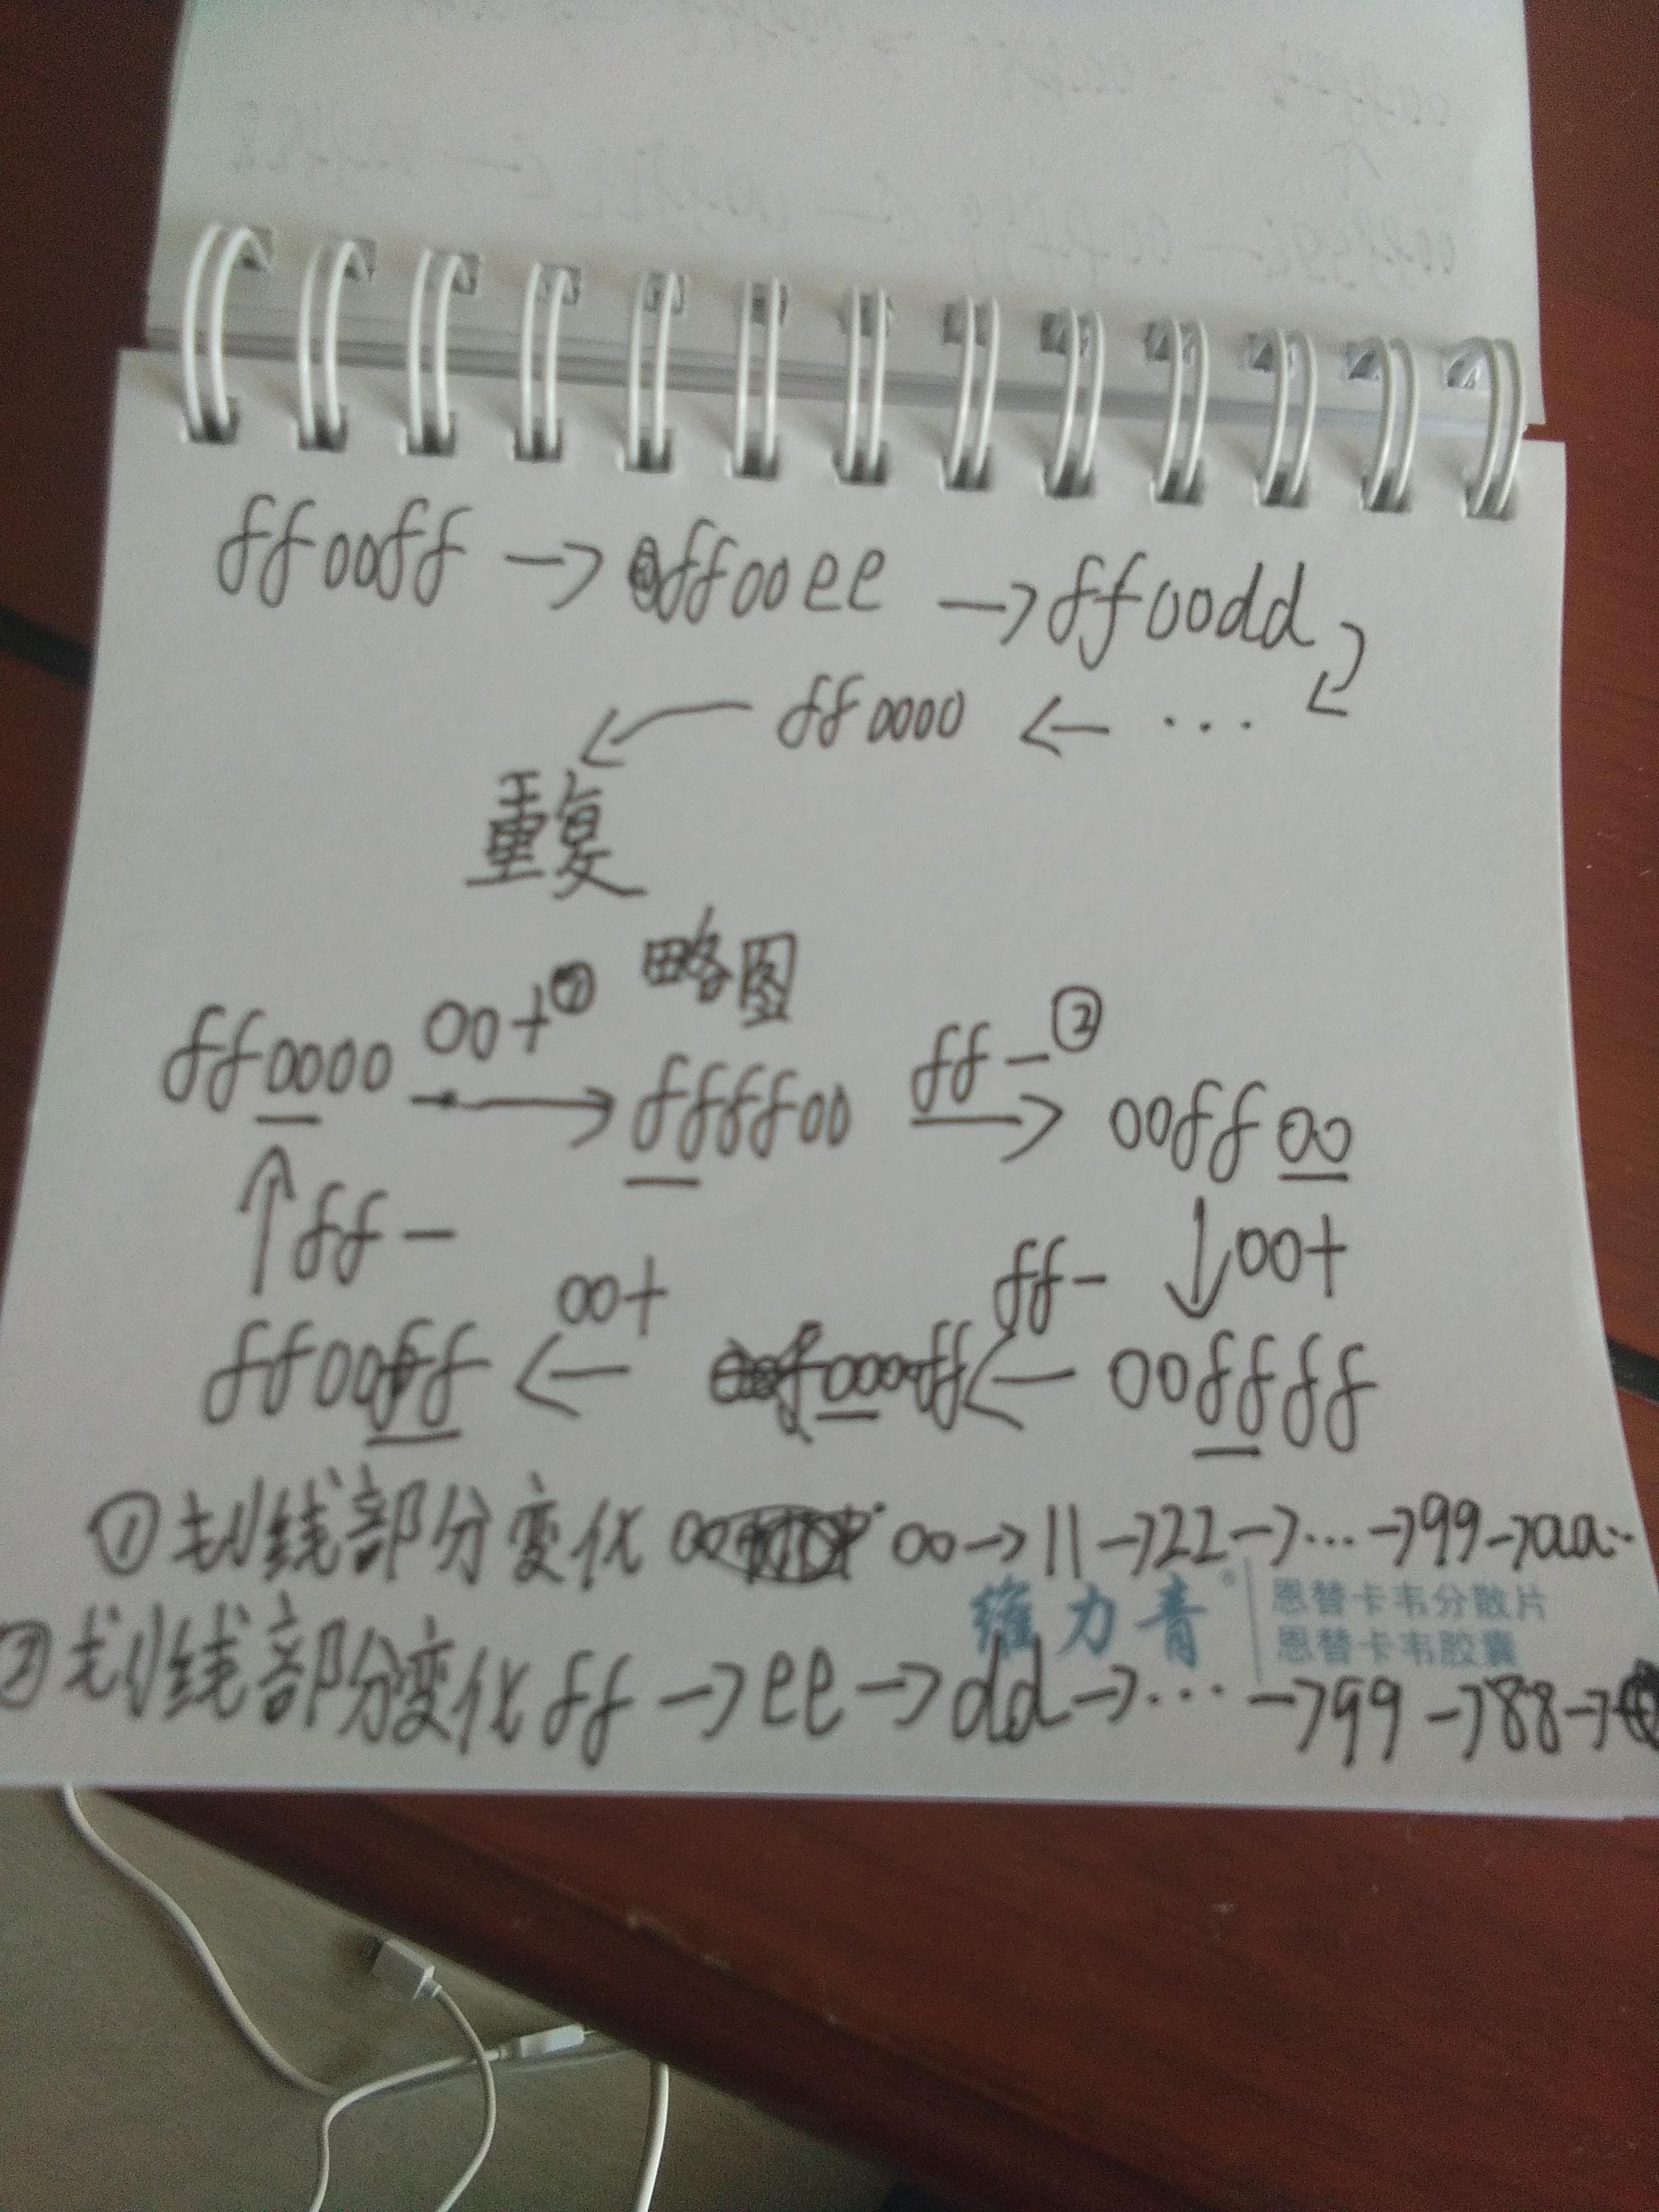 ff00ff → ff00ee → ff00dd
ff0000 ← ...
重复
略图
ff0000 00+① → ffff00 ff-② → 00ff00
↑ff- ↓00+
ff00ff ← 00+ 0000ff ← ff- 00ffff
①划线部分变化 00 00→11→22→...→99→aa..
维力青® 恩替卡韦分散片
恩替卡韦胶囊
②划线部分变化ff→ee→dd→...→99→88→